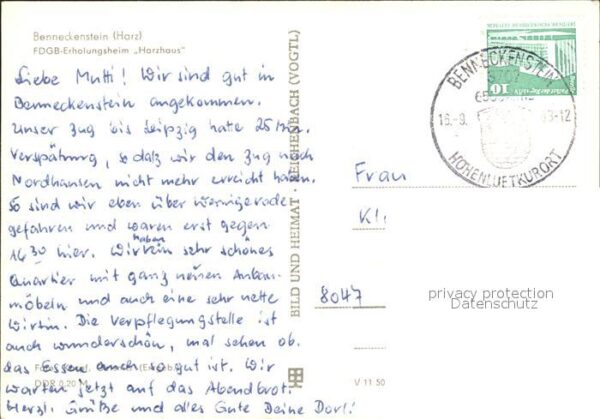 Benneckenstein (Harz)
FDGB-Erholungsheim „Harzhaus"
Liebe Mutti! Wir sind gut in
Benneckenstein angekommen.
Unser Zug bis Leipzig hatte 25 Min.
Verspätung, so daß wir den Zug nach
Nordhausen nicht mehr erreicht haben.
So sind wir eben über Wernigerode
gefahren und waren erst gegen
16.30 hier. Wir haben ein sehr schönes
Quartier mit ganz neuen Anbau-
möbeln und auch eine sehr nette
Wirtin. Die Verpflegungstelle ist
auch wunderschön, mal sehen ob
das Essen auch so gut ist. Wir
warten jetzt auf das Abendbrot.
Herzl. Grüße und alles Gute Deine Dorl!
DDR 0,20 M
BILD UND HEIMAT · REICHENBACH (VOGTL)
V 11 50
BENNECKENSTEIN
HÖHENLUFTKURORT
10
Frau
Kl.
8047
privacy protection
Datenschutz